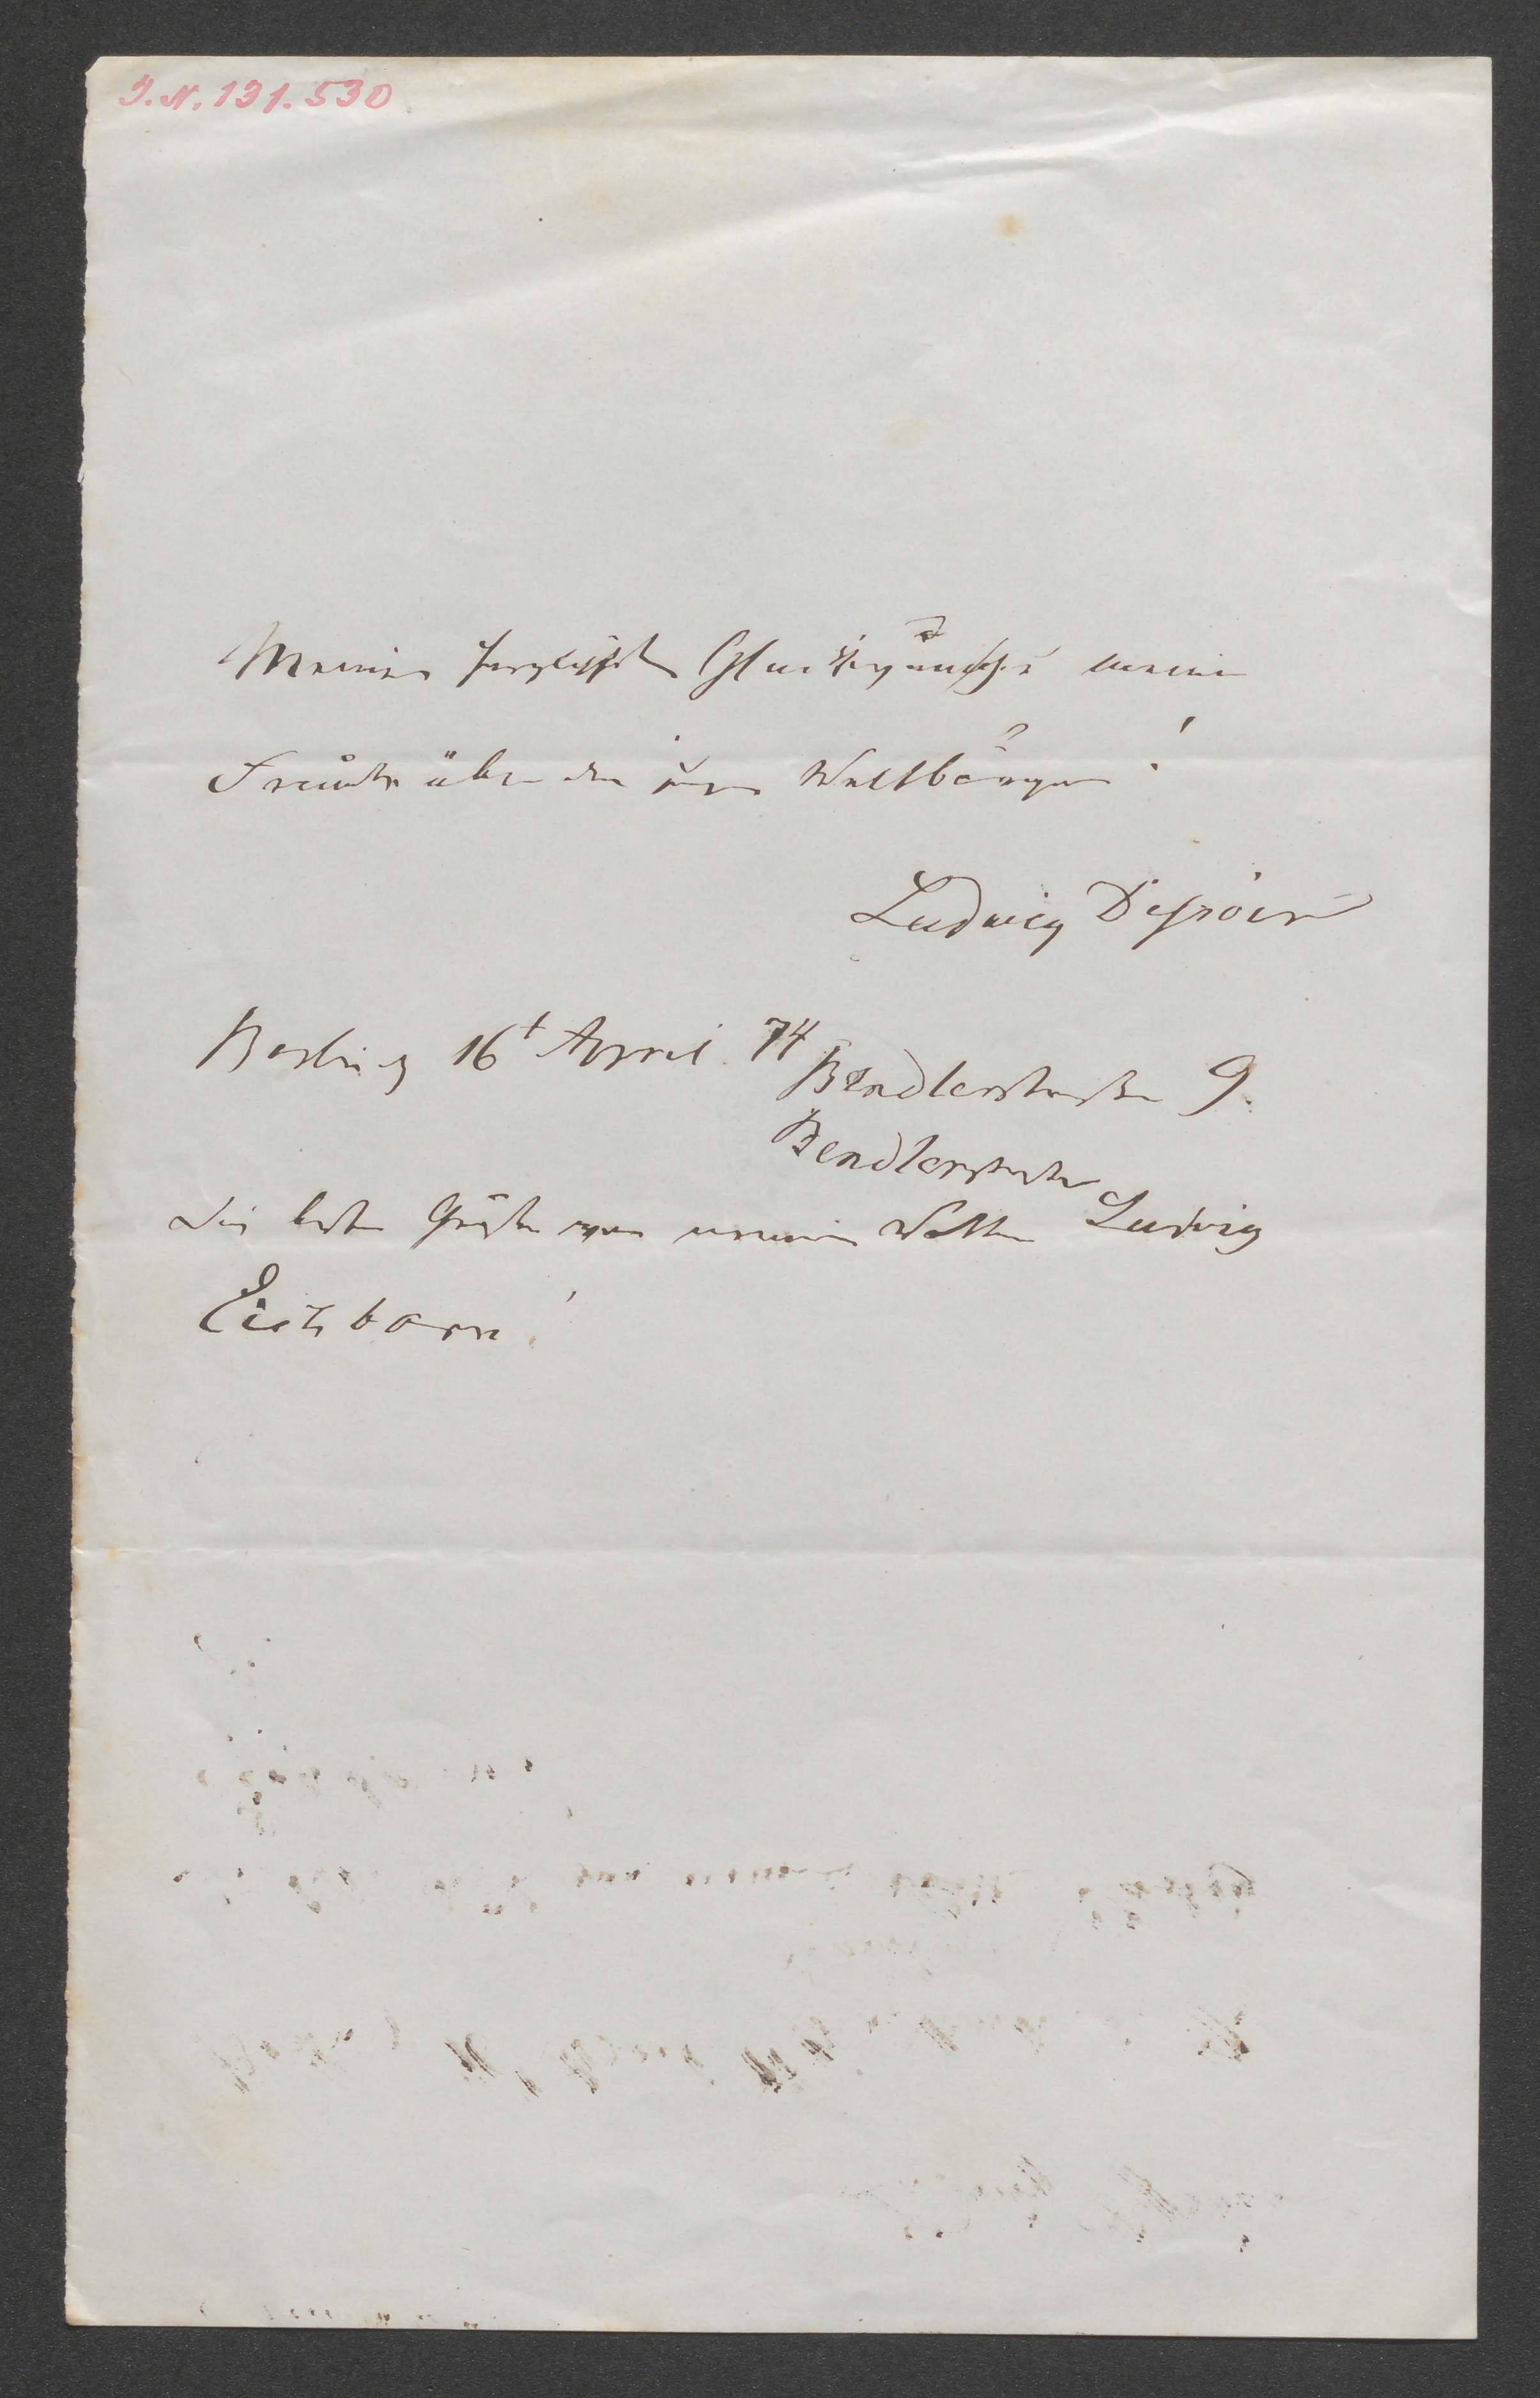 I.N. 131.530
Meine herzlichsten Glückwünsche meine
Freude über den jungen Weltbürger!
Ludwig Dessoir
Berlin 16t April 74
Bendlerstraße 9.
Bendlerstraße
Die besten Grüße von meinem Ludwig
Eichborn!